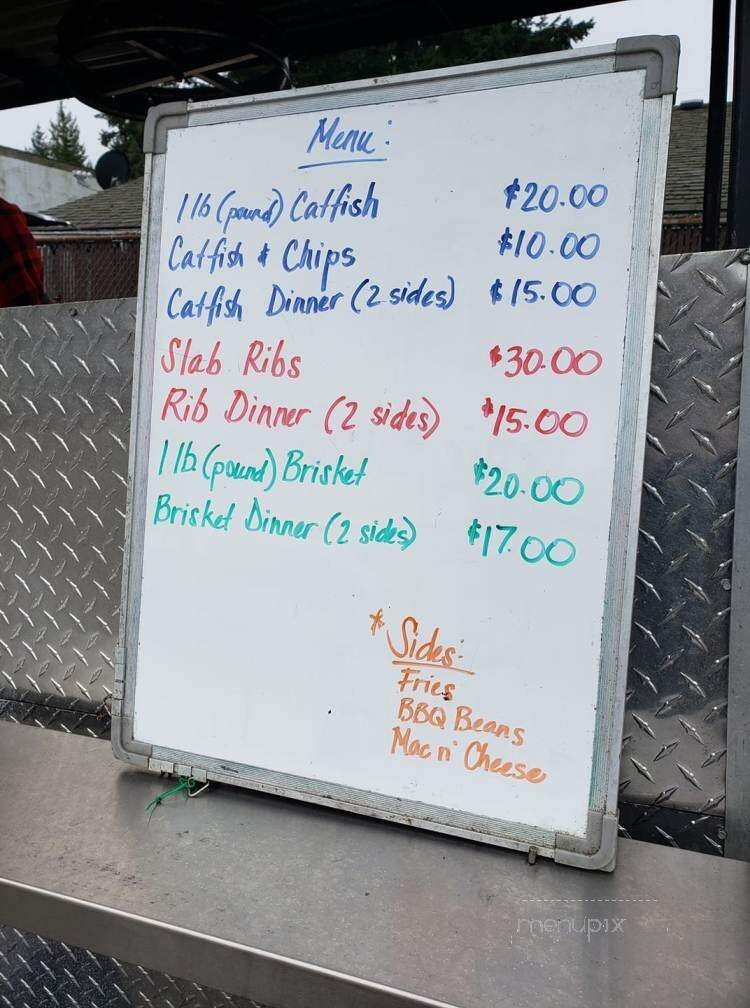 Menu:
1 lb (pound) Catfish $20.00
Catfish & Chips $10.00
Catfish Dinner (2 sides) $15.00
Slab Ribs $30.00
Rib Dinner (2 sides) $15.00
1 lb. (pound) Brisket $20.00
Brisket Dinner (2 sides) $17.00
* Sides:
Fries
BBQ Beans
Mac n' Cheese
menupix